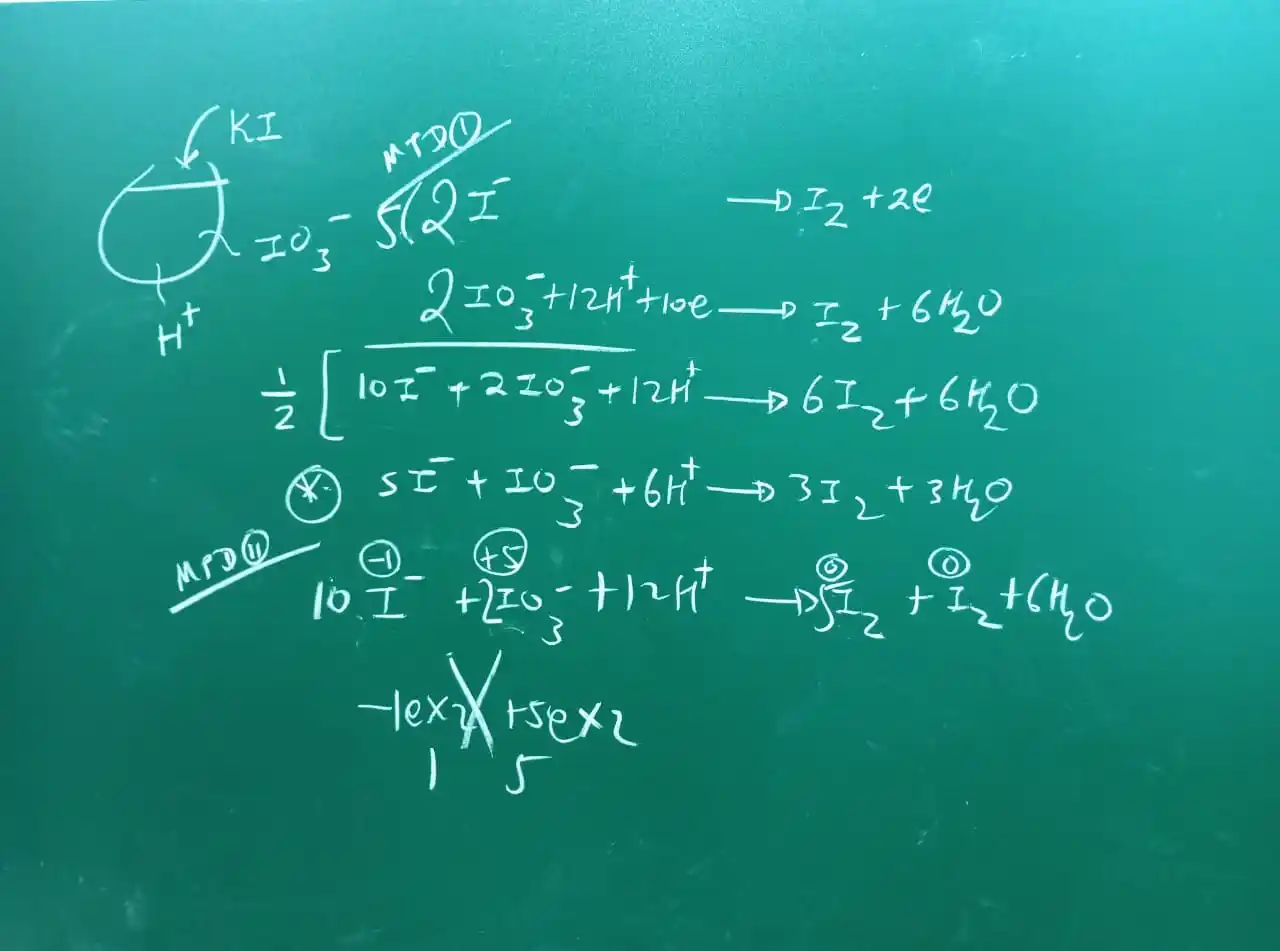 KI
MTD①
IO₃⁻ 5(2I⁻ → I₂ + 2e
H⁺
2IO₃⁻ + 12H⁺ + 10e → I₂ + 6H₂O
1/2 [ 10I⁻ + 2IO₃⁻ + 12H⁺ → 6I₂ + 6H₂O
(*) 5I⁻ + IO₃⁻ + 6H⁺ → 3I₂ + 3H₂O
MTD⑪
-1 +5 0 0
10I⁻ + 2IO₃⁻ + 12H⁺ → 5I₂ + I₂ + 6H₂O
-1e×2 +5e×2
1 5